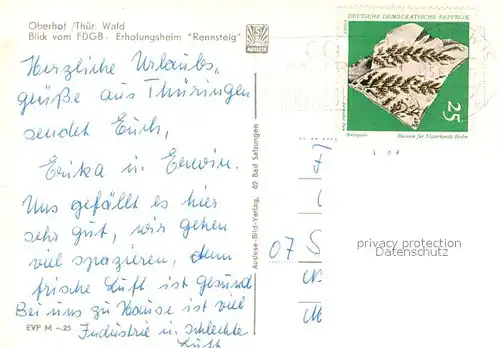 Oberhof /Thür. Wald
Blick vom FDGB - Erholungsheim "Rennsteig"
AUSLESE
Herzliche Urlaubs-
grüße aus Thüringen
sendet Euch,
Erika u. Erwin.
Uns gefällt es hier
sehr gut, wir gehen
viel spazieren, denn
frische Luft ist gesund
Bei uns zu Hause ist viel
Industrie u. schlechte
Luft
EVP M –.25
Auslese-Bild-Verlag, 62 Bad Salzungen
DEUTSCHE DEMOKRATISCHE REPUBLIK
25
Museum für Naturkunde Berlin
07 S
privacy protection
AK-Ansichtskarten.de